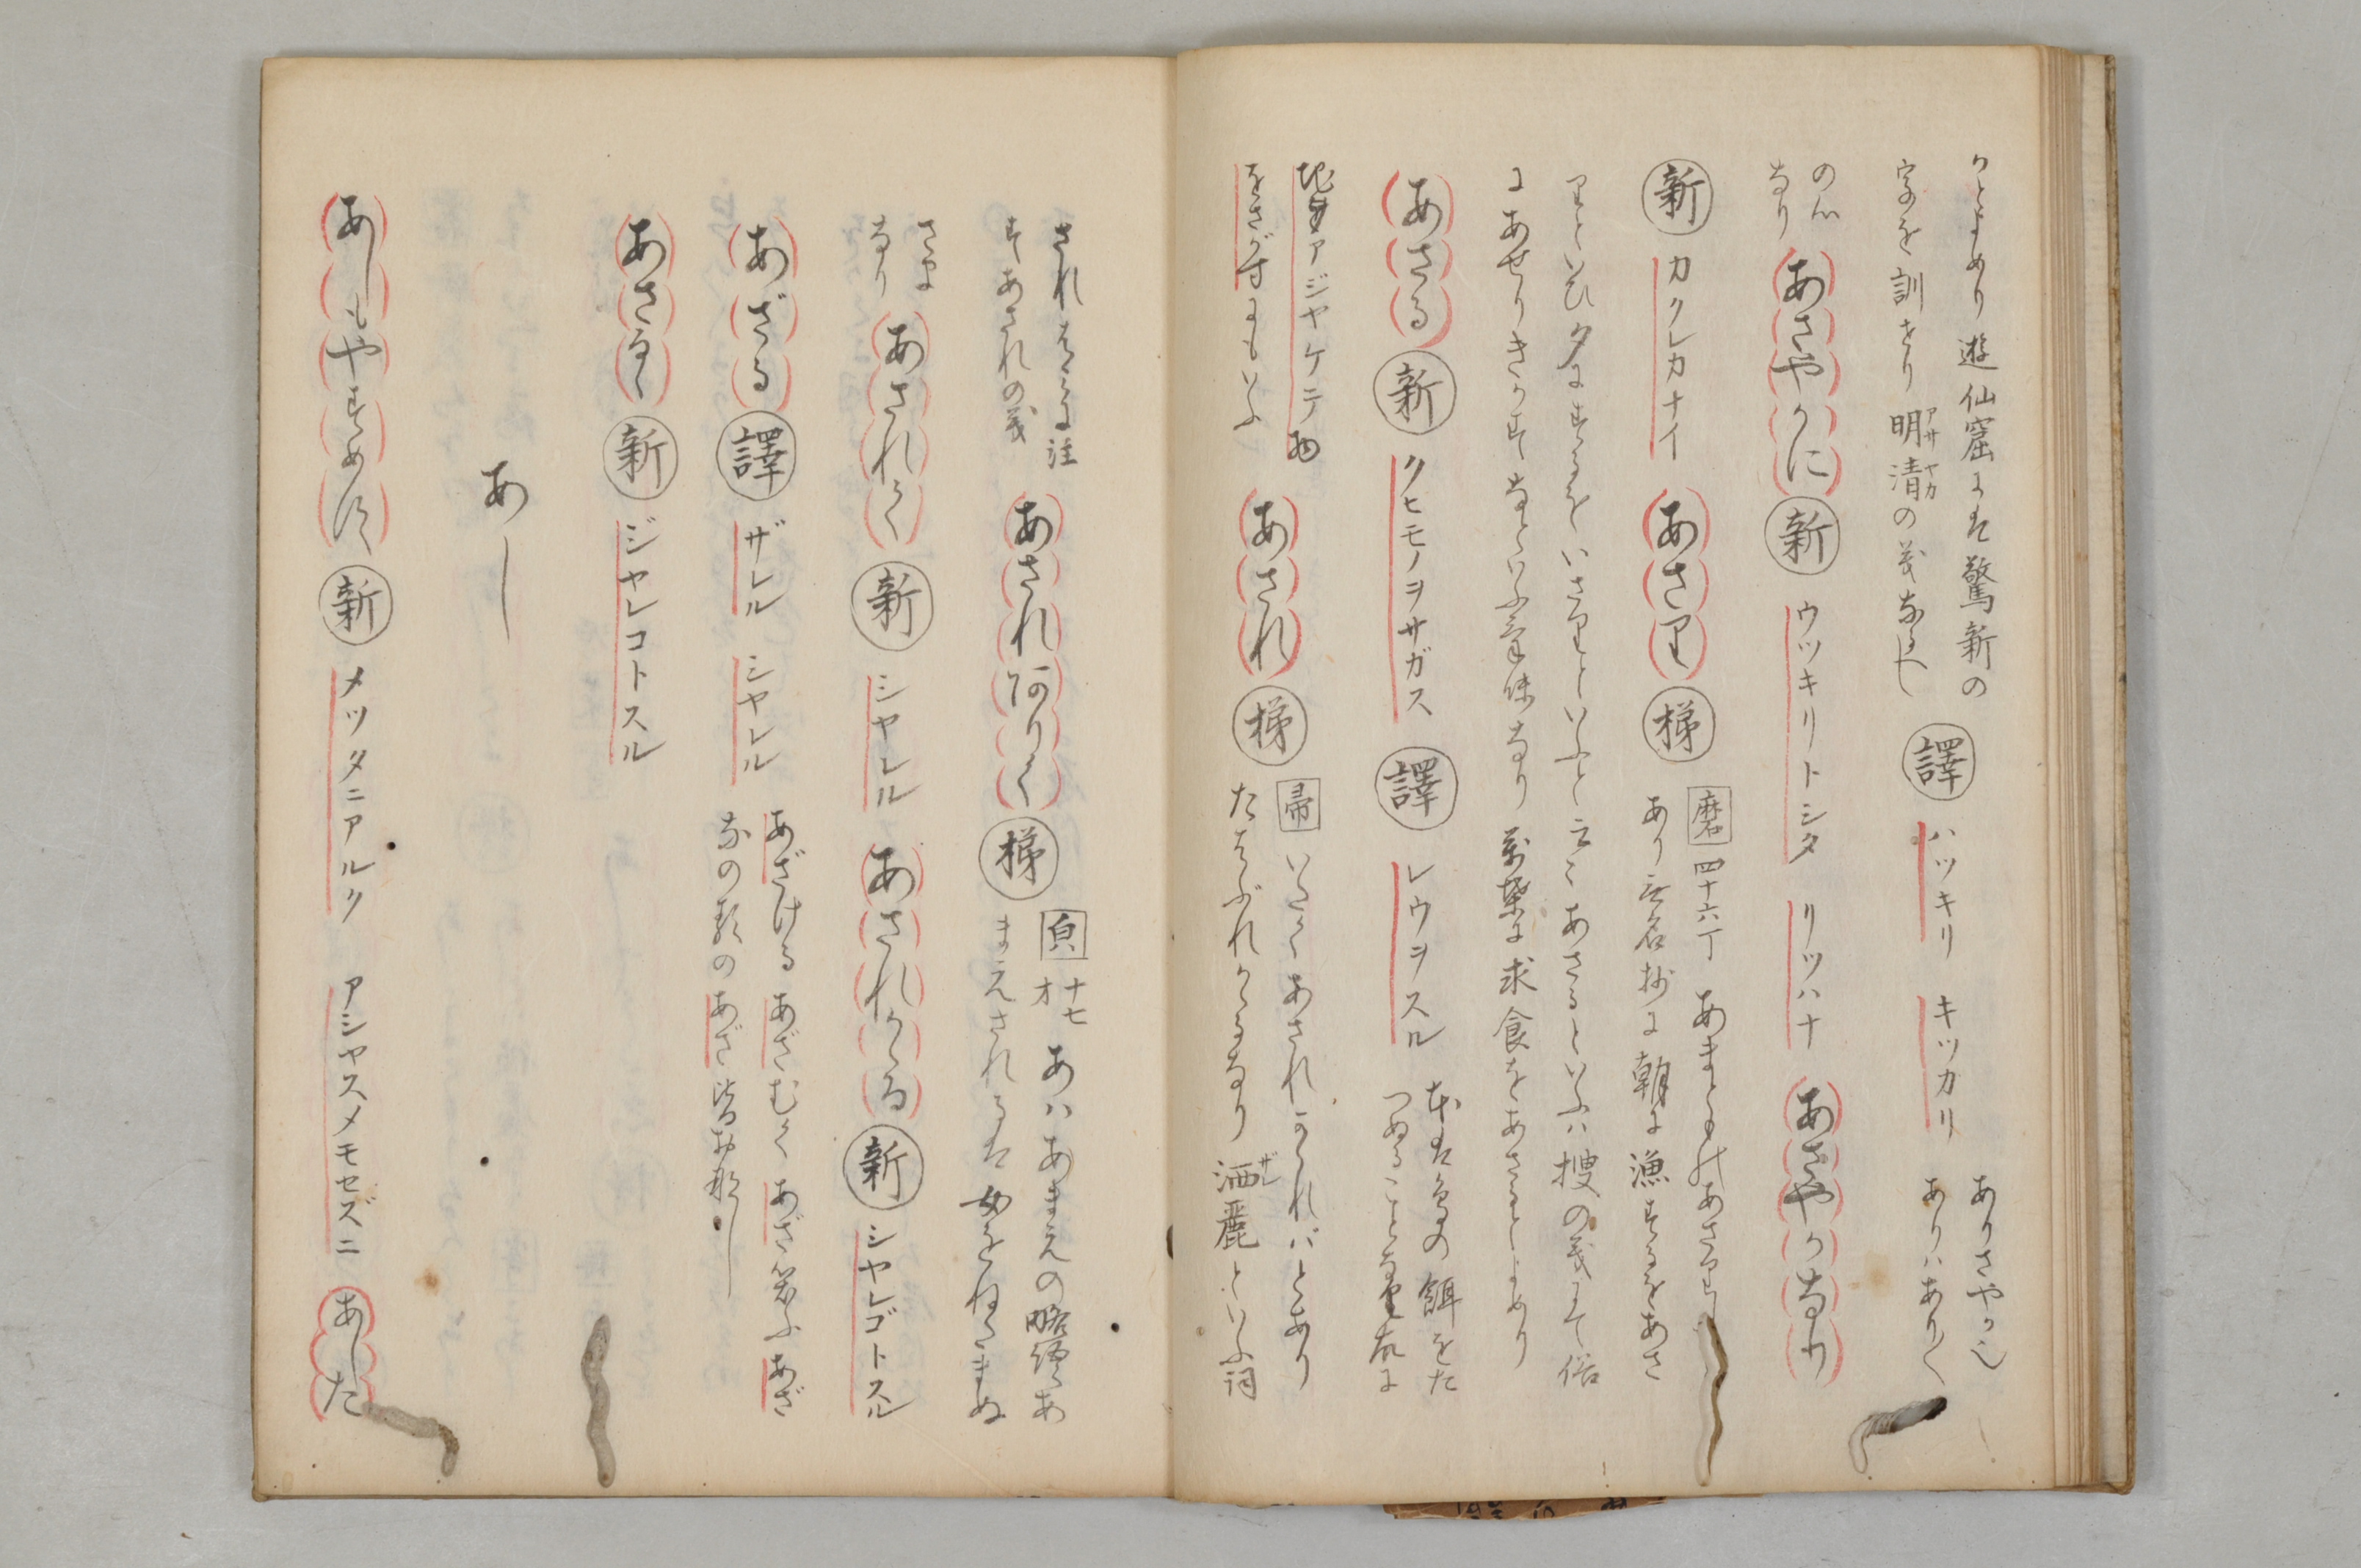 かとよめり 遊仙窟には驚新の
字を訓せり 明清の義なるへし
アサ ヤカ
譯 ハツキリ キツカリ
ありさやか也
ありハあり〱
の心
なり
あさやかに 新 ウツキリトシタ リツハナ あさやかなり
新 カクレカナイ あさり 梯
磨 四十六丁 あまともの あさり
あり 和名抄に朝に漁するをあさ
りといひ夕にするをいさりといふと云々あさるといふハ捜の義にて俗
にあせりさかすなといふ意味なり 万葉に求食をあさるとよめり
あさる 新 クヒモノヲサガス 譯 レウヲスル
本は魚の餌をた
つぬること
アジヤケテ物
をさがすにもいふ
あされ 梯
帚 いたくあされかゝれバとあり
たはぶれかゝるなり 洒麗といふ詞
ザレ
されはゝみ注
すあされの義
あされありく 梯
負 十七才 あハあまえの略語あ
まえされるは
さま
なり
あされく 新 シヤレル あされかゝる 新 シヤレゴトスル
あざる 譯 ザレル シヤレル
あざける あざむく あざ笑ふ あざ
なの類のあざ皆お那し
あさるゝ 新 ジヤレコトスル
あし
あしもやすめす 新 メツタニアルク アシヤスメモセズニ あした